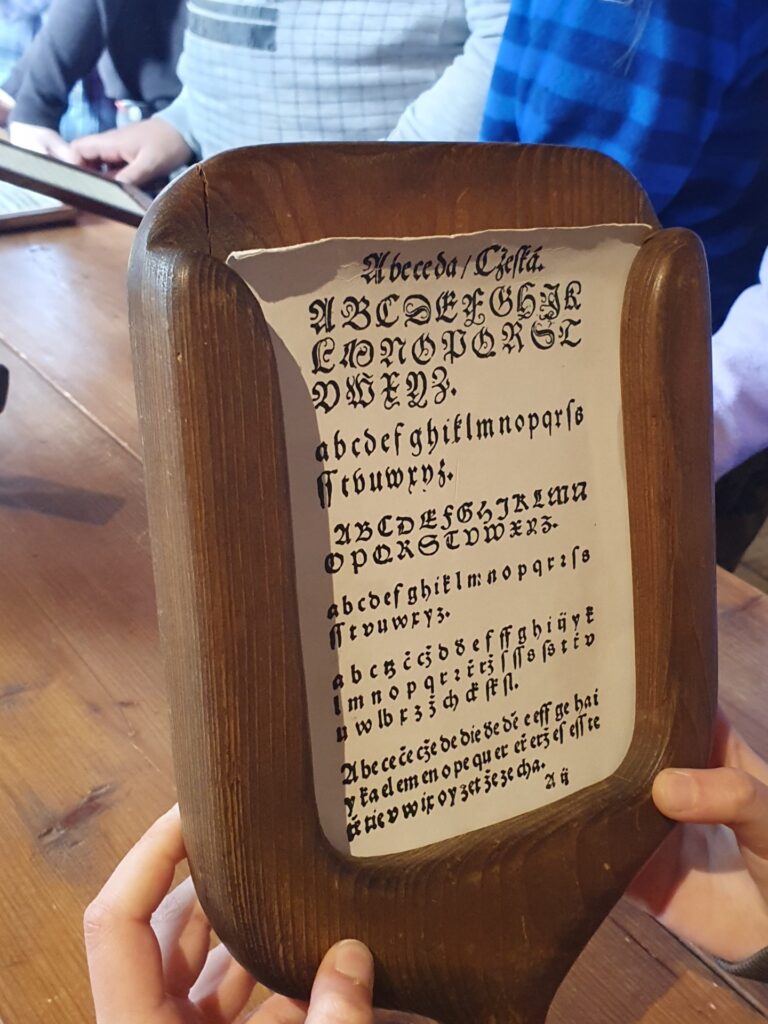 Abeceda / Cžeſká.
A B C D E F G H I K
L M N O P Q R S T
V W X Y Z.
a b c d e f g h i k l m n o p q r ſ s
ſſ t v u w x y z.
A B C D E F G H J K L M N
O P Q R S T V W X Y Z.
a b c d e f g h i k l m n o p q r ꝛ ſ s
ſſ t v u w x y z.
a b c č d e f ff g h i y k
l m n o p q r ꝛ
u w x z ž ch ck ſk ſt.
A be ce če cže de die e eff ge ha i
y ka el em en o pe qu er eſ eſſ te
v w ix o y zet že ze cha.
A ij